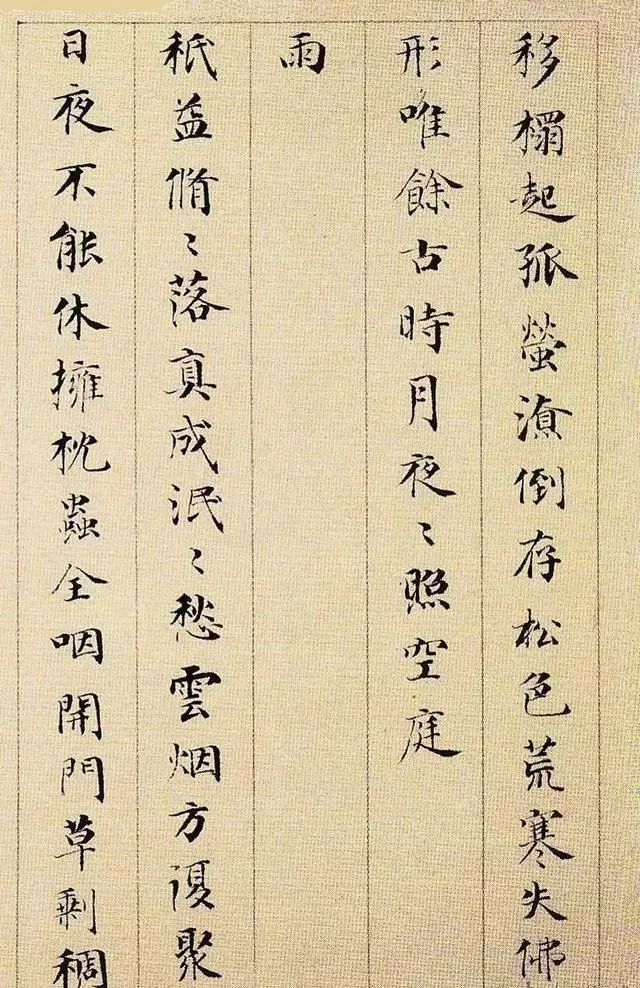 移榻起孤螢潦倒存松色荒寒失佛
形唯餘古時月夜〻照空庭
雨
秖益脩〻落真成泯〻愁雲烟方復聚
日夜不能休擁枕蟲全咽開門草剩稠